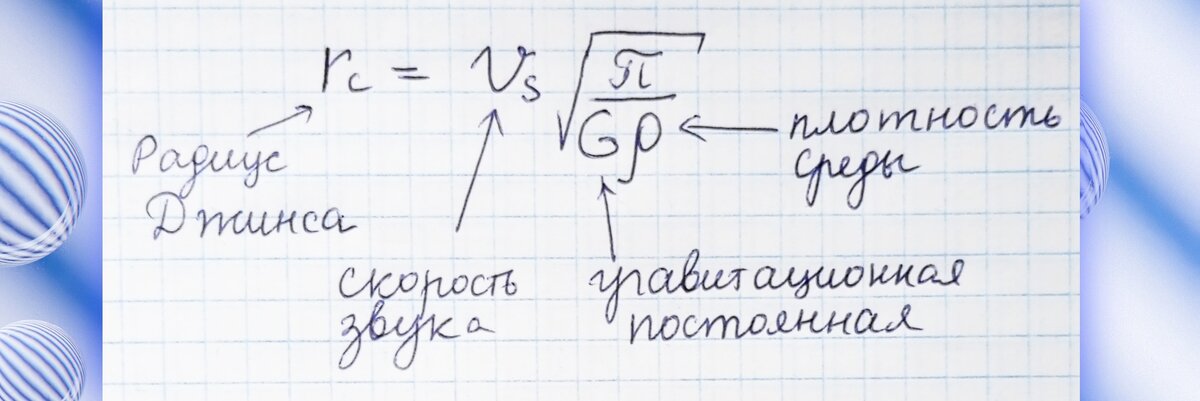 r_c = v_s √(π/(Gρ))
Радиус
Джинса
скорость
звука
гравитационная
постоянная
плотность
среды